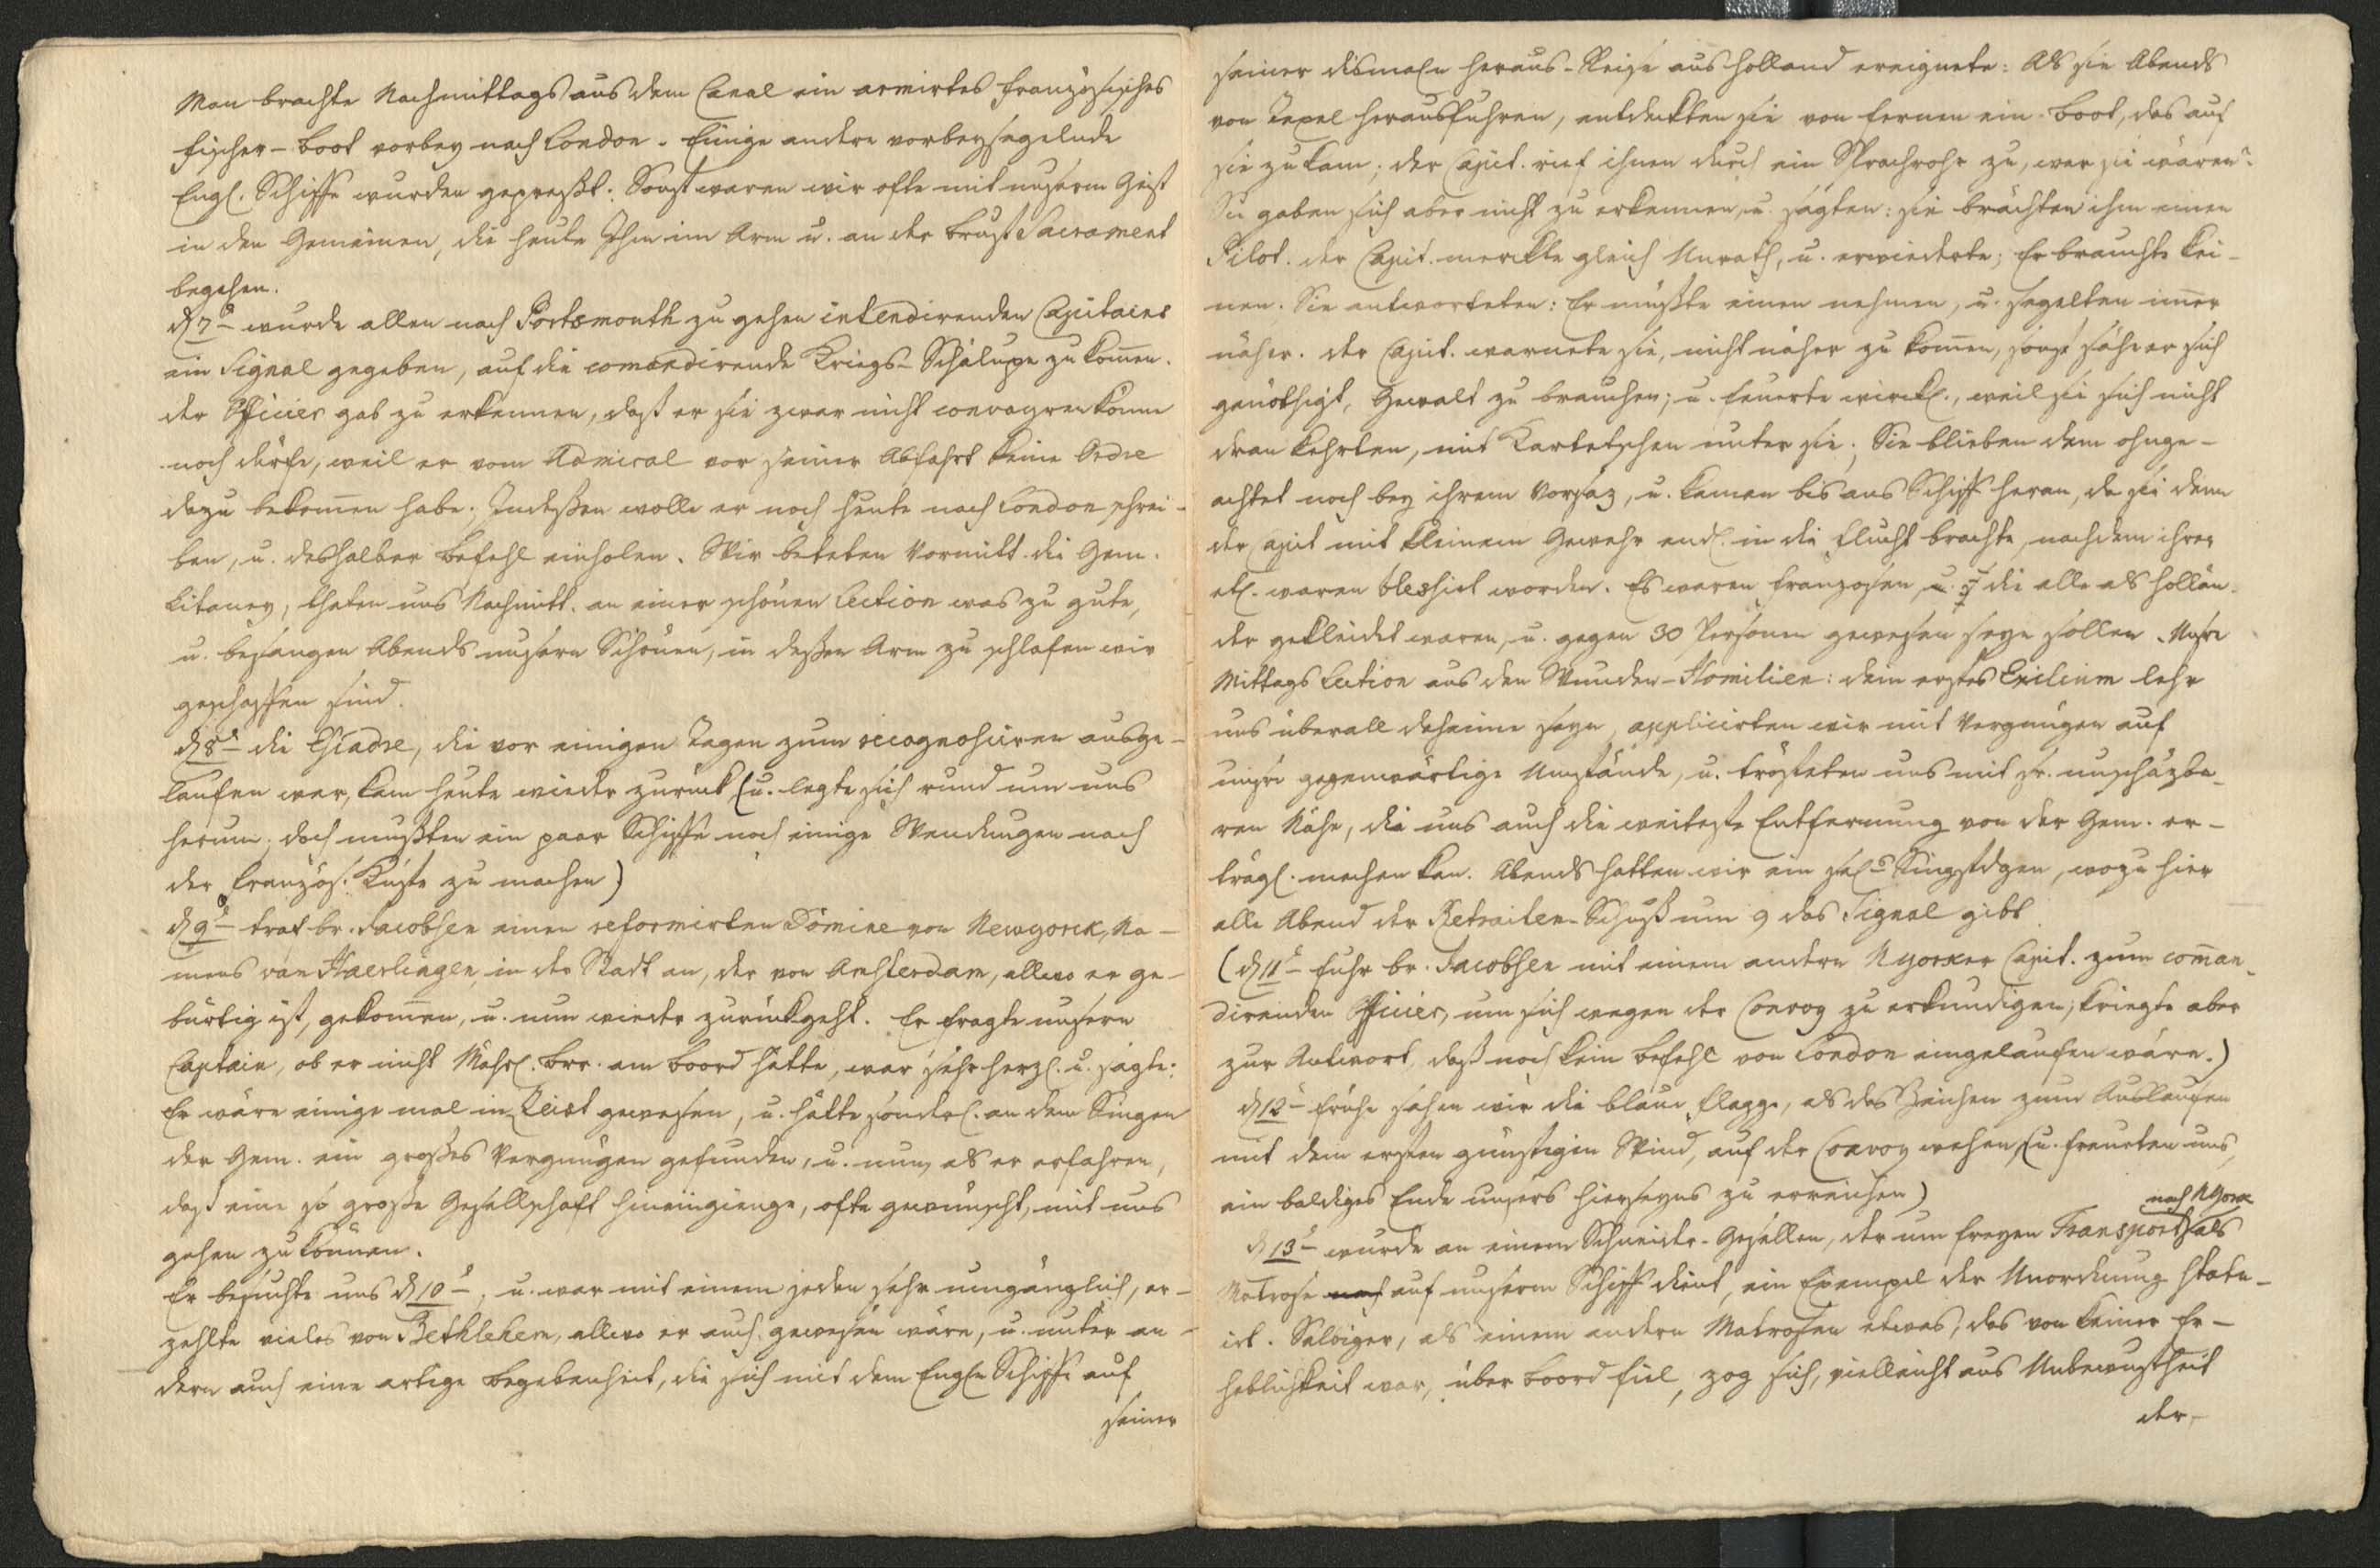 Man brachte Nachmittags aus dem Canal ein armirtes französisches
Fischer-Boot vorbey nach London. Einige andere vorbeysegelnde
Engl. Schiffe wurden gepreßt. Sonst waren wir ofte mit unserm Geist
in den Gemeinen, die heute Ihm im Arm u. an der Brust Sacrament
begehen.
d 7ᵗ wurde allen nach Portsmouth zu gehen intendirenden Capitains
ein Signal gegeben, auf die comandirende Kriegs-Schalupe zu kom̄en.
der Officier gab zu erkennen, daß er sie zwar nicht convoyren könne
noch dürfe, weil er vom Admiral vor seiner Abfahrt keine Ordre
dazu bekom̄en habe; Indeßen wolle er noch heute nach London schrei-
ben, u. deshalber Befehl einholen. Wir beteten Vormitt. die Gem.
Litaney, thaten uns Nachmitt. an einer schönen Lection was zu gute,
u. besangen Abends unsern Schönen, in deßen Arm zu schlafen wir
geschaffen sind.
d 8ᵗ die Escadre, die vor einigen Tagen zum recognosciren ausge-
laufen war, kam heute wieder zurück (u. legte sich rund um uns
herum; doch mußten ein paar Schiffe noch einige Wendungen nach
der französ. Küste zu machen)
d 9ᵗ traf br. Jacobsen einen reformirten Dömine von Newyorck, Na-
mens van Haerlingen, in der Stadt an, der von Amsterdam, allwo er ge-
bürtig ist, gekom̄en, u. nun wieder zurückgeht. Er fragte unsern
Captain, ob er nicht Mähr. Brr. am Boord hätte, war sehr herzl. u. sagte:
Er wäre einige mal in Zeist gewesen, u. hätte sonderl. an dem Singen
der Gem. ein großes Vergnügen gefunden, u. nun, als er erfahren,
daß eine so große Gesellschaft hineingienge, ofte gewünscht, mit uns
gehen zu können.
Er besuchte uns d 10ᵗ, u. war mit einem jeden sehr umgänglich, er-
zehlte vieles von Bethlehem, allwo er auch gewesen wäre, u. unter an-
dern auch eine artige Begebenheit, die sich mit dem Engl. Schiffe auf
seiner
seiner dismaln heraus-Reise aus Holland ereignete: Als sie Abends
von Texel herausfuhren, entdeckten sie von fernen ein Boot, das auf
sie zu kam; der Capit. rief ihnen durch ein Sprachrohr zu, wer sie wären?
Sie gaben sich aber nicht zu erkennen, u. sagten: sie brächten ihm einen
Pilot. der Capit. merckte gleich Unrath, u. erwiederte; Er brauchte kei-
nen. Sie antworteten: Er müßte einen nehmen, u. segelten im̄er
näher. der Capit. warnete sie, nicht näher zu kom̄en, sonst sähe er sich
genöthigt, Gewalt zu brauchen; u. feuerte wirckl., weil sie sich nicht
dran kehrten, mit Kartetschen unter sie; Sie blieben dem ohnge-
achtet noch bey ihrem Vorsaz, u. kamen bis ans Schiff heran, da sie denn
der Capit mit kleinem Gewehr endl. in die Flucht brachte, nachdem ihrer
etl. waren blessirt worden. Es waren Franzosen, die alle als Hollän-
der gekleidet waren, u. gegen 30 Personen gewesen seyn sollen. Unsre
Mittags Lection aus den Wunden-Homilien: dein erstes Exilium lehr
uns überall daheime seyn, applicirten wir mit Vergnügen auf
unsre gegenwärtige Umstände, u. trösteten uns mit sr. unschäzba-
ren Nähe, die uns auch die weiteste Entfernung von der Gem. er-
trägl. machen kan. Abends hatten wir ein sel. Singstdgen, wozu hier
alle Abend der Retraiten-Schuß um 9 das Signal gibt
(d 11ᵗ fuhr br. Jacobsen mit einem andern NYorker Capit. zum com̄an-
direnden Officier, um sich wegen der Convoy zu erkundigen; kriegte aber
zur Antwort, daß noch kein Befehl von London eingelaufen wäre.)
d 12ᵗ frühe sahen wir die blaue Flagge, als das Zeichen zum Auslaufen
mit dem ersten günstigen Wind, auf der Convoy wehen, (u. freueten uns,
ein baldiges Ende unsers hierseyns zu erreichen)
d 13ᵗ wurde an einem Schneider-Gesellen, der um freyen Transport nach NYorck als
Matrose auf unserm Schiff dient, ein Exempel der Unordnung statu-
irt. Selbiger, als einem andern Matrosen etwas, das von keiner Er-
heblichkeit war, über Boord fiel, zog sich, vielleicht aus Unbewustheit
der